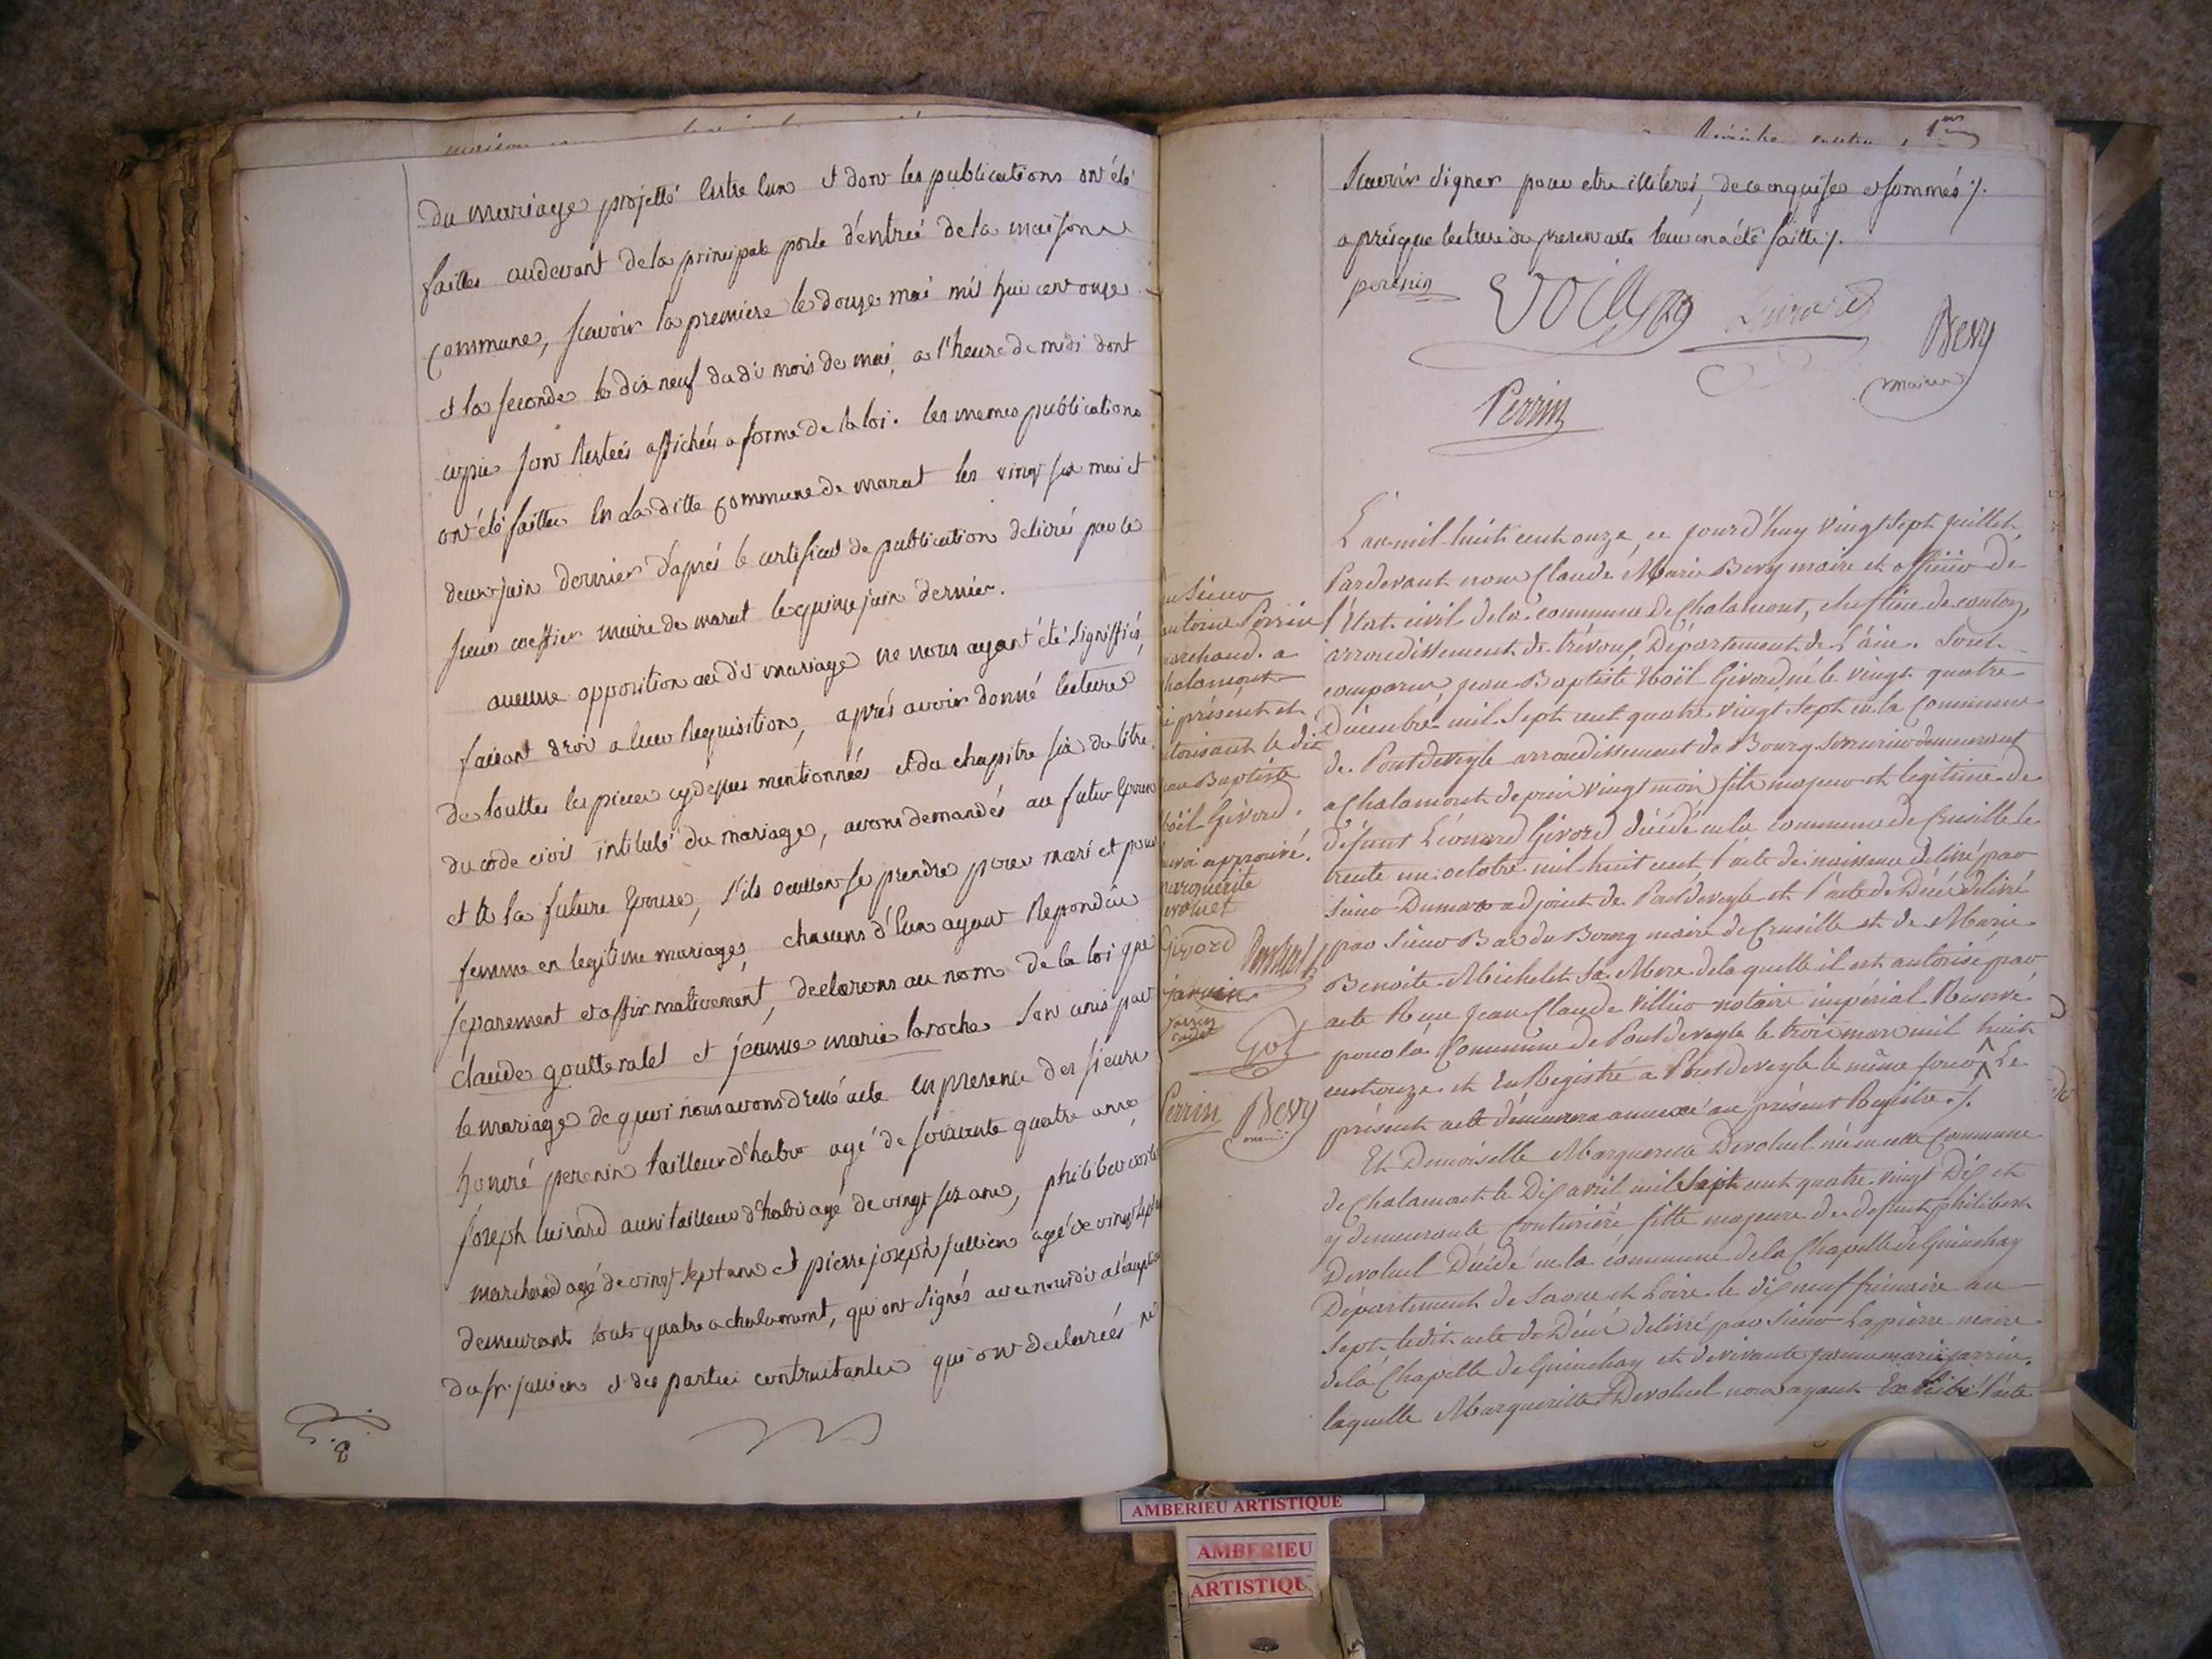 du mariage projetté Entre Eux et dont les publications ont été
faittes audevant de la principale porte d'entrée de la maison
commune, scavoir la premiere le douze mai mil huit cent onze
et la seconde le dix neuf du dit mois de mai, a l'heure de midi dont
copies sont Restées affichées a forme de la loi. les memes publications
ont été faittes En La ditte commune de marat les vingt six mai et
deux juin dernier d'aprés le certificat de publication delivré par le
sieur maire de marat le quinze juin dernier.
aucune opposition au dit mariage ne nous ayant été signiffiés,
faisant droit a leur Requisition, aprés avoir donné lecture
de touttes les pieces cy dessus mentionnées et du chapitre six du titre
du code civil intitulé du mariage, avons demandés au futur Epoux
et a la future Epouse, s'ils veullent se prendre pour mari et pour
femme en legitime mariage, chacuns d'Eux ayant Repondu
separement et affirmativement, declarons au nom de la loi que
claude goutteratel et jeanne marie laroche sont unis par
le mariage de quoi nous avons dressé acte En presence des sieurs
honoré perenin tailleur d'habit agé de soixante quatre ans,
joseph luirard aussi tailleur d'habit agé de vingt six ans, philibert
marchand agé de vingt sept ans et pierre joseph jullien agé de vingt sept
demeurant touts quatre a chalamont, qui ont signés avec nous dit a l'éxception
du sr. jullien et des parties contractantes qui ont declarées ne
scavoir signer pour etre illiterés, de ce enquises et sommés ./.
aprés que lecture du present acte leur en a été faitte ./.
perenin
Luirard
Bevy
maire
Perrin
L'an mil huit cent onze, ce jourd'huy vingt sept juillet,
Pardevant nous Claude Marie Bevy maire et officier de
l'Etat civil de la commune de Chalamont, chef lieu de canton,
arrondissement de trévoux, Département de L'ain. Sont
comparus, jean Baptiste Noël Givord, né le vingt quatre
Décembre mil sept cent quatre vingt sept en la Commune
de Pontdeveyle arrondissement de Bourg serrurier demeurant
a Chalamont depuis vingt mois fils majeur et legitime de
défunt Léonard Givord décédé en la commune de Crusille le
trente un octobre mil huit cent, l'acte de naissance delivré par
sieur Dumara adjoint de Pontdeveyle et l'acte de Décés delivré
par sieur Bas du Bourg maire de Crusille et de Marie
Benoite Michelet sa Mere de laquelle il est autorisé par
acte Reçu jean Claude Villier notaire impérial Reservé
pour la Commune de Pontdeveyle le trois mars mil huit
cent onze et En Registré a Pontdeveyle le même jour Le
présent acte démeurera annexé au présent Registre ./.
Et Demoiselle Marguerite Devoluet née en cette Commune
de Chalamont le Dix avril mil sept cent quatre vingt Dix et
y demeurante, Couturiére fille majeure de defunt philibert
Devoluet Décédé en la commune de la Chapelle de Guinchay
Département de Saone et Loire le dix neuf frimaire an
sept ledit acte de Décés delivré par sieur Lapierre maire
de la Chapelle de Guinchay et de vivante jeanne marie jarrin
laquelle Marguerite Devoluet nous ayant Exhibé l'acte
Sieur
antoine Perrin
marchand a
chalamont
présent et
autorisant le dit
jean Baptiste
Noël Givord.
renvoi approuvé.
marguerite
Givord
jarrin
jarrin
cadet
Got
Perrin Bevy
maire
AMBERIEU ARTISTIQUE
AMBERIEU
ARTISTIQU